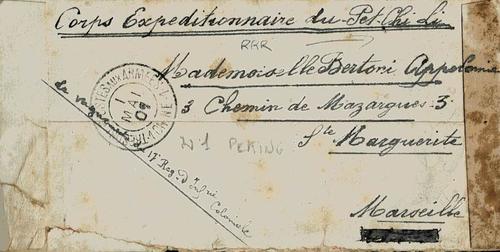 Corps Expeditionnaire du Pet-Chi-Li
RRR
Mademoiselle Bertoni Appolonie
3 Chemin de Mazargues 3
Ste Marguerite
Marseille
N°1 PEKING
1
MAI
01
Le vaguemestre
17 Reg. D'Infrie Coloniale